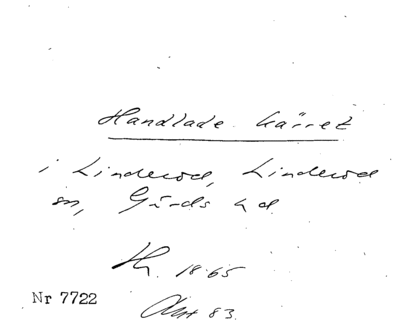 Handlade Kärret
i Linderod, Linderod
sn, Gärds hd
Th. 18.65
Nr 7722
Akt 83.